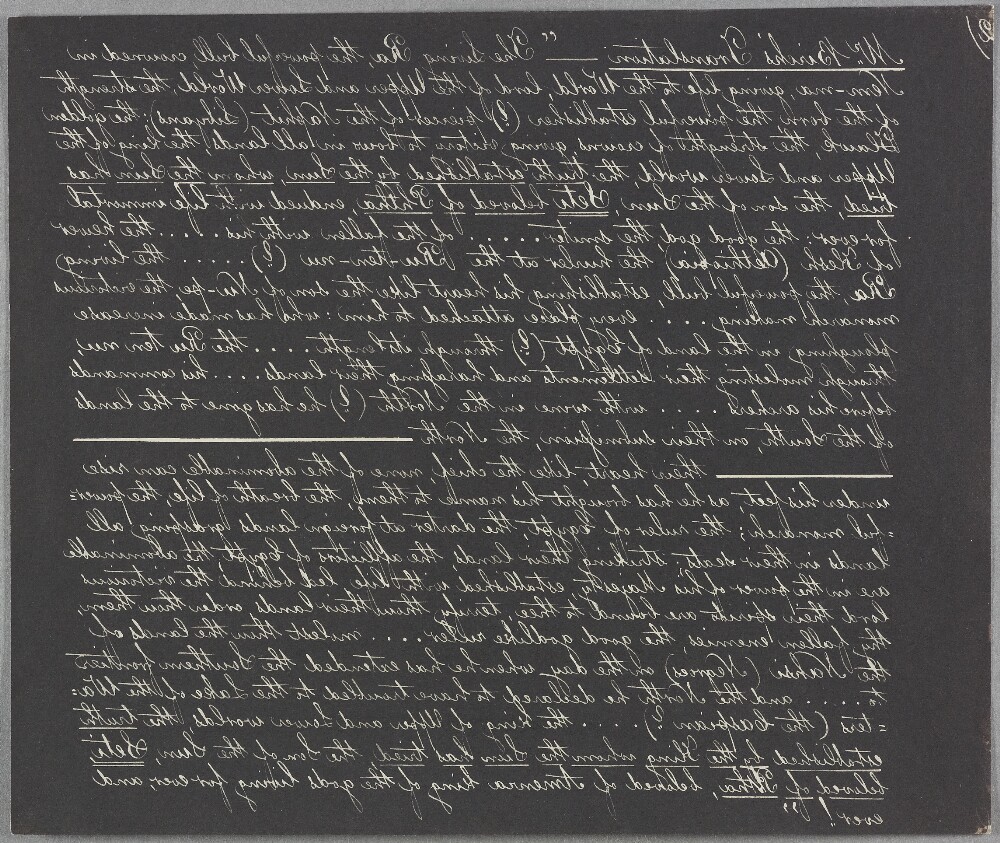 2)
Mr. Birch's Translation — "The living Ra, the powerful bull crowned in
Ken-na, giving life to the World, lord of the Upper and Lower World, the strength
of the born the powerful establisher (?) pierces of the Naphut (Libyans); the golden
Hawk, the strength of crowns giving victory to bow in all lands, the king of the
Upper and Lower world, the truth established by the Sun, whom the Sun has
tried, the son of the Sun, Seti beloved of Phtha, endued with life immortal
for ever: the good god the smiter . . . . . of the fallen with his . . . . . the hewer
of Kesh (Æthiopia) the hurler at the Ru-ten-nu (?) . . . . . the living
Ra, the powerful bull, establishing his heart like the son of Nu-pe, the victorious
monarch making . . . . every place attached to him: who has made increase
ploughing in the land of Egypt (?) through its length . . . . the Ru ten nu,
through molesting their settlements and harassing their lands . . . . his commands
before his archers . . . . . with wine in the North (?) he has gone to the lands
of the South, on their submission, the North
their heart, like the chief, none of the abominable can rise
under his feet, as he has brought his name to them, the breath of life, the power=
=ful monarch; the ruler of Egypt, the darter at foreign lands grasping all
lands in their seats; striking their lands the afflictor of Egypt, the abominable
are in the power of his Majesty, established with life, led behind the victorious
lord their spirits are bound to thee, terrify thou their lands order thou them,
thy fallen enemies, the good godlike ruler . . . . molest thou the lands of
the Nahsi (Negroes) on the day when he has extended the Southern frontier
to . . . . . and the North he declared to have troubled to the Lake of the Wa=
=tes (the Caspian ?) . . . . . the king of Upper and Lower worlds the truth
established by the King whom the Sun has tried, the Son of the Sun, Seti,
beloved of Ptha, beloved of Amenra king of the gods living for ever, and
ever!"